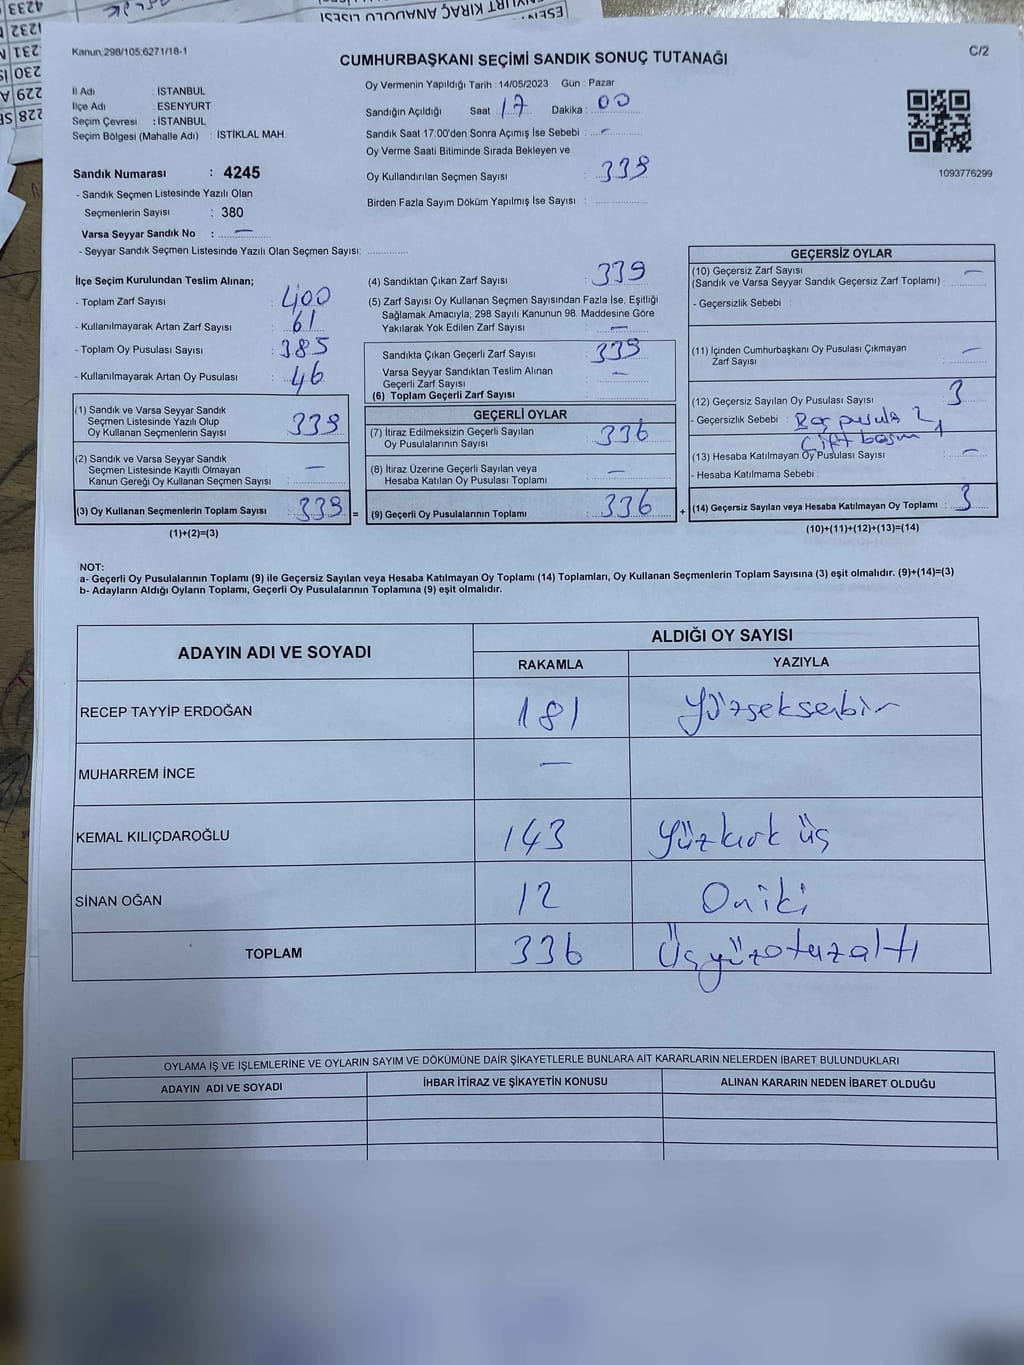 4233
1232
231
230
229 A
228
ESENYURT KIRAÇ ANADOLU LİSESİ
Kanun,298/105,6271/18-1
C/2
CUMHURBAŞKANI SEÇİMİ SANDIK SONUÇ TUTANAĞI
İl Adı : İSTANBUL
İlçe Adı : ESENYURT
Seçim Çevresi : İSTANBUL
Seçim Bölgesi (Mahalle Adı) : İSTİKLAL MAH.
Oy Vermenin Yapıldığı Tarih : 14/05/2023 Gün : Pazar
Sandığın Açıldığı Saat : 17 Dakika : 00
Sandık Saat 17:00'den Sonra Açımış İse Sebebi : -
Oy Verme Saati Bitiminde Sırada Bekleyen ve
Oy Kullandırılan Seçmen Sayısı : 339
Birden Fazla Sayım Döküm Yapılmış İse Sayısı :
1093776299
Sandık Numarası : 4245
- Sandık Seçmen Listesinde Yazılı Olan
Seçmenlerin Sayısı : 380
Varsa Seyyar Sandık No : -
- Seyyar Sandık Seçmen Listesinde Yazılı Olan Seçmen Sayısı:
İlçe Seçim Kurulundan Teslim Alınan;
- Toplam Zarf Sayısı : 400
- Kullanılmayarak Artan Zarf Sayısı : 61
- Toplam Oy Pusulası Sayısı : 385
- Kullanılmayarak Artan Oy Pusulası : 46
(1) Sandık ve Varsa Seyyar Sandık
Seçmen Listesinde Yazılı Olup
Oy Kullanan Seçmenlerin Sayısı : 339
(2) Sandık ve Varsa Seyyar Sandık
Seçmen Listesinde Kayıtlı Olmayan
Kanun Gereği Oy Kullanan Seçmen Sayısı : -
(3) Oy Kullanan Seçmenlerin Toplam Sayısı : 339 =
(1)+(2)=(3)
(4) Sandıktan Çıkan Zarf Sayısı : 339
(5) Zarf Sayısı Oy Kullanan Seçmen Sayısından Fazla İse, Eşitliği
Sağlamak Amacıyla; 298 Sayılı Kanunun 98. Maddesine Göre
Yakılarak Yok Edilen Zarf Sayısı : -
Sandıkta Çıkan Geçerli Zarf Sayısı : 339
Varsa Seyyar Sandıktan Teslim Alınan
Geçerli Zarf Sayısı : -
(6) Toplam Geçerli Zarf Sayısı :
GEÇERLİ OYLAR
(7) İtiraz Edilmeksizin Geçerli Sayılan
Oy Pusulalarının Sayısı : 336
(8) İtiraz Üzerine Geçerli Sayılan veya
Hesaba Katılan Oy Pusulası Toplamı : -
(9) Geçerli Oy Pusulalarının Toplamı : 336 +
GEÇERSİZ OYLAR
(10) Geçersiz Zarf Sayısı
(Sandık ve Varsa Seyyar Sandık Geçersiz Zarf Toplamı) : -
- Geçersizlik Sebebi :
(11) İçinden Cumhurbaşkanı Oy Pusulası Çıkmayan
Zarf Sayısı : -
(12) Geçersiz Sayılan Oy Pusulası Sayısı : 3
- Geçersizlik Sebebi : Boş pusula 2
Çift basım 1
(13) Hesaba Katılmayan Oy Pusulası Sayısı : -
- Hesaba Katılmama Sebebi :
(14) Geçersiz Sayılan veya Hesaba Katılmayan Oy Toplamı : 3
(10)+(11)+(12)+(13)=(14)
NOT:
a- Geçerli Oy Pusulalarının Toplamı (9) ile Geçersiz Sayılan veya Hesaba Katılmayan Oy Toplamı (14) Toplamları, Oy Kullanan Seçmenlerin Toplam Sayısına (3) eşit olmalıdır. (9)+(14)=(3)
b- Adayların Aldığı Oyların Toplamı, Geçerli Oy Pusulalarının Toplamına (9) eşit olmalıdır.
ADAYIN ADI VE SOYADI
ALDIĞI OY SAYISI
RAKAMLA YAZIYLA
RECEP TAYYİP ERDOĞAN 181 Yüzseksenbir
MUHARREM İNCE -
KEMAL KILIÇDAROĞLU 143 Yüzkırk üç
SİNAN OĞAN 12 Oniki
TOPLAM 336 Üçyüzotuzaltı
OYLAMA İŞ VE İŞLEMLERİNE VE OYLARIN SAYIM VE DÖKÜMÜNE DAİR ŞİKAYETLERLE BUNLARA AİT KARARLARIN NELERDEN İBARET BULUNDUKLARI
ADAYIN ADI VE SOYADI İHBAR İTİRAZ VE ŞİKAYETİN KONUSU ALINAN KARARIN NEDEN İBARET OLDUĞU